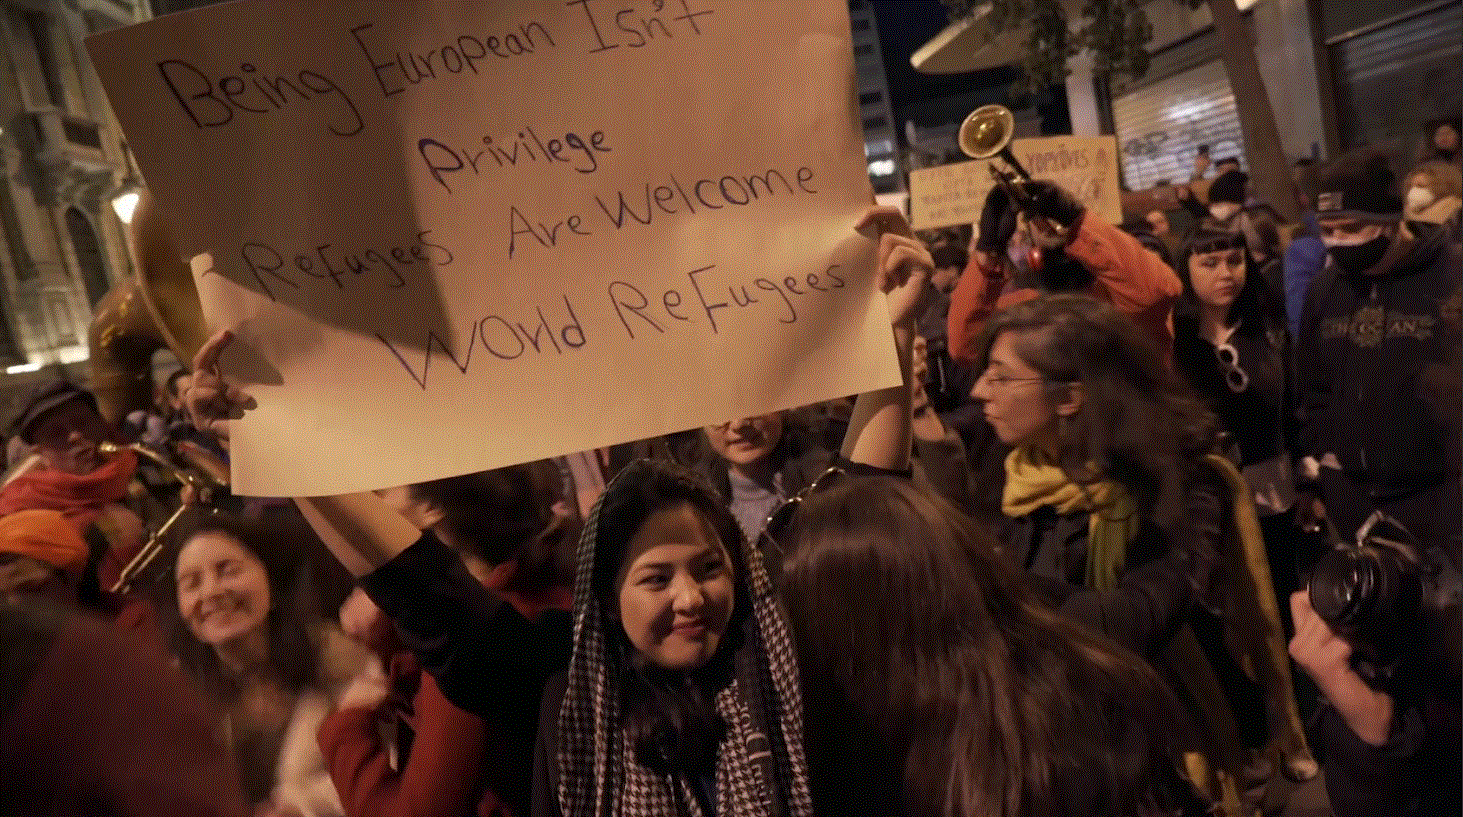 Being European Isn't
Privilege
Refugees Are Welcome
World Refugees